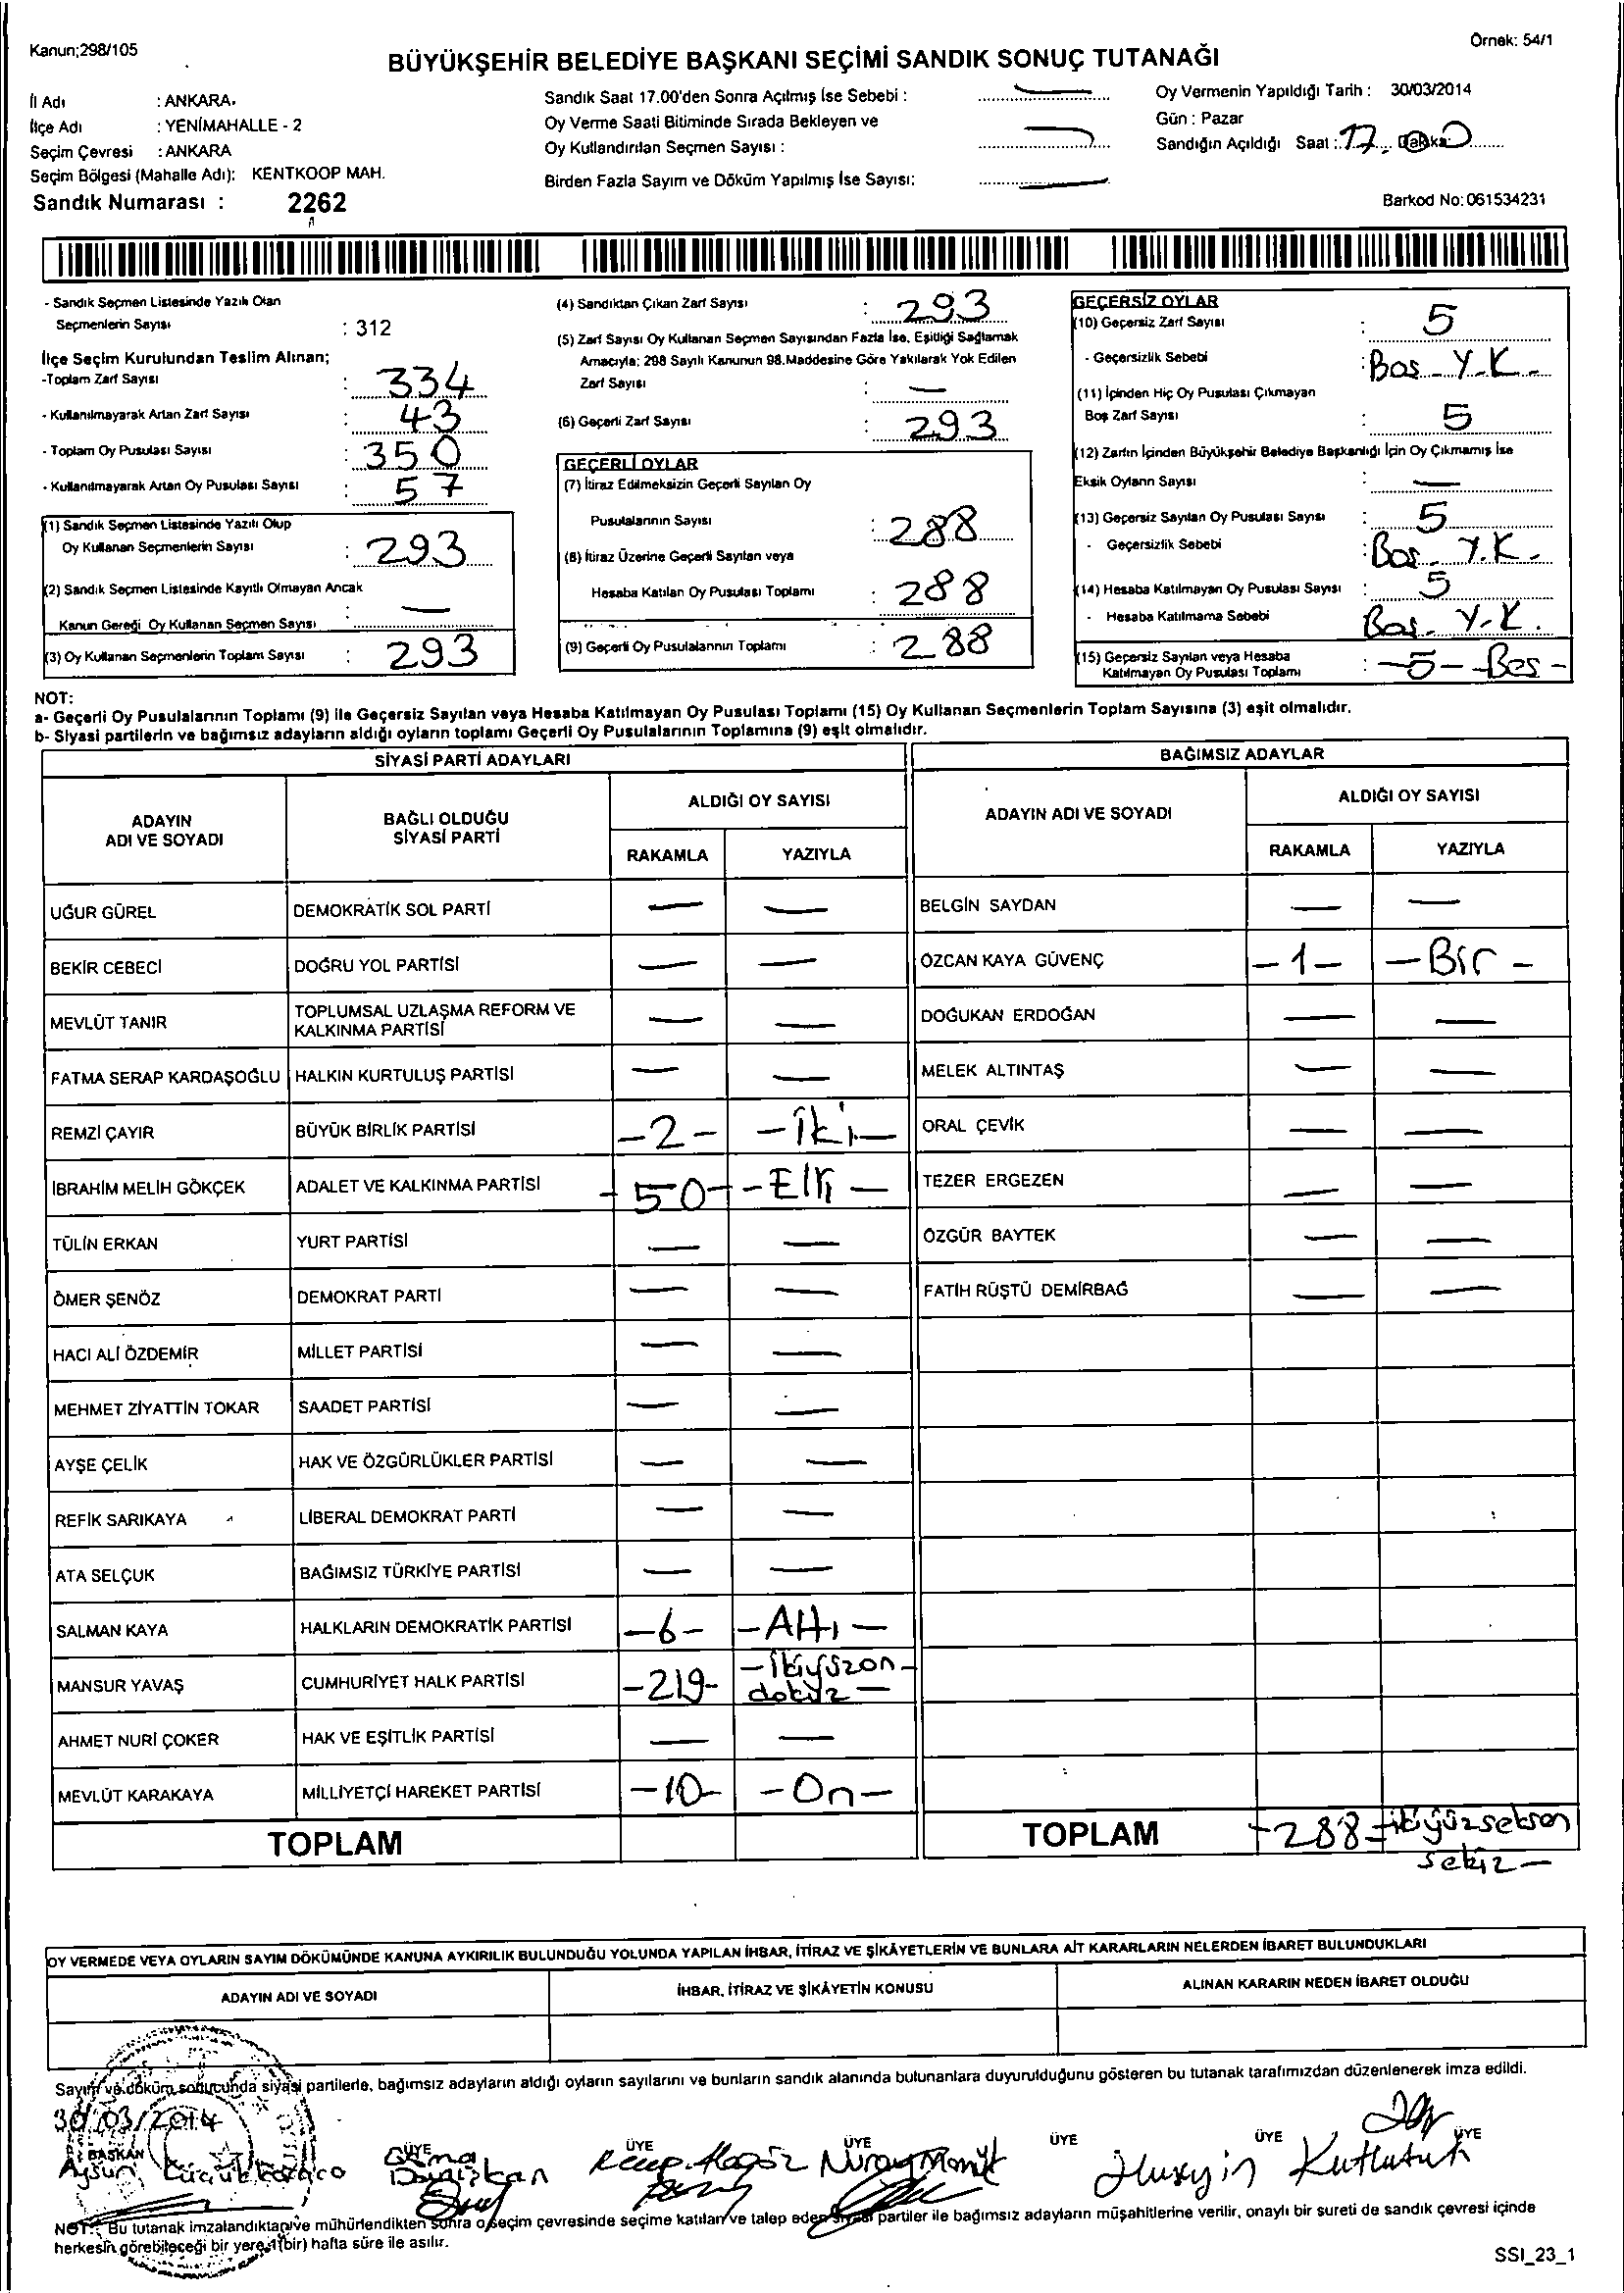 Kanun;298/105
Örnek: 54/1
BÜYÜKŞEHİR BELEDİYE BAŞKANI SEÇİMİ SANDIK SONUÇ TUTANAĞI
İl Adı : ANKARA.
İlçe Adı : YENİMAHALLE - 2
Seçim Çevresi : ANKARA
Seçim Bölgesi (Mahalle Adı): KENTKOOP MAH.
Sandık Numarası : 2262
Sandık Saat 17.00'den Sonra Açılmış İse Sebebi : —
Oy Verme Saati Bitiminde Sırada Bekleyen ve
Oy Kullandırılan Seçmen Sayısı :
Birden Fazla Sayım ve Döküm Yapılmış İse Sayısı: —
Oy Vermenin Yapıldığı Tarih : 30/03/2014
Gün : Pazar
Sandığın Açıldığı Saat : 17 Dakika:
Barkod No: 061534231
- Sandık Seçmen Listesinde Yazılı Olan
Seçmenlerin Sayısı : 312
İlçe Seçim Kurulundan Teslim Alınan;
-Toplam Zarf Sayısı : 334
- Kullanılmayarak Artan Zarf Sayısı : 43
- Toplam Oy Pusulası Sayısı : 350
- Kullanılmayarak Artan Oy Pusulası Sayısı : 57
(1) Sandık Seçmen Listesinde Yazılı Olup
Oy Kullanan Seçmenlerin Sayısı : 293
(2) Sandık Seçmen Listesinde Kayıtlı Olmayan Ancak
Kanun Gereği Oy Kullanan Seçmen Sayısı : —
(3) Oy Kullanan Seçmenlerin Toplam Sayısı : 293
(4) Sandıktan Çıkan Zarf Sayısı : 293
(5) Zarf Sayısı Oy Kullanan Seçmen Sayısından Fazla İse, Eşitliği Sağlamak
Amacıyla; 298 Sayılı Kanunun 98.Maddesine Göre Yakılarak Yok Edilen
Zarf Sayısı : —
(6) Geçerli Zarf Sayısı : 293
GEÇERLİ OYLAR
(7) İtiraz Edilmeksizin Geçerli Sayılan Oy
Pusulalarının Sayısı : 288
(8) İtiraz Üzerine Geçerli Sayılan veya
Hesaba Katılan Oy Pusulası Toplamı : 288
(9) Geçerli Oy Pusulalarının Toplamı : 288
GEÇERSİZ OYLAR
(10) Geçersiz Zarf Sayısı : 5
- Geçersizlik Sebebi : Boş Y.K.
(11) İçinden Hiç Oy Pusulası Çıkmayan
Boş Zarf Sayısı : 5
(12) Zarfın İçinden Büyükşehir Belediye Başkanlığı İçin Oy Çıkmamış İse
Eksik Oyların Sayısı : —
(13) Geçersiz Sayılan Oy Pusulası Sayısı : 5
- Geçersizlik Sebebi : Boş Y.K.
(14) Hesaba Katılmayan Oy Pusulası Sayısı : 5
- Hesaba Katılmama Sebebi Boş. Y.K.
(15) Geçersiz Sayılan veya Hesaba
Katılmayan Oy Pusulası Toplamı : -5- -Beş-
NOT:
a- Geçerli Oy Pusulalarının Toplamı (9) ile Geçersiz Sayılan veya Hesaba Katılmayan Oy Pusulası Toplamı (15) Oy Kullanan Seçmenlerin Toplam Sayısına (3) eşit olmalıdır.
b- Siyasi partilerin ve bağımsız adayların aldığı oyların toplamı Geçerli Oy Pusulalarının Toplamına (9) eşit olmalıdır.
SİYASİ PARTİ ADAYLARI
ADAYIN ADI VE SOYADI
BAĞLI OLDUĞU SİYASİ PARTİ
ALDIĞI OY SAYISI
RAKAMLA YAZIYLA
UĞUR GÜREL DEMOKRATİK SOL PARTİ — —
BEKİR CEBECİ DOĞRU YOL PARTİSİ — —
MEVLÜT TANIR TOPLUMSAL UZLAŞMA REFORM VE KALKINMA PARTİSİ — —
FATMA SERAP KARDAŞOĞLU HALKIN KURTULUŞ PARTİSİ — —
REMZİ ÇAYIR BÜYÜK BİRLİK PARTİSİ -2- -İki-
İBRAHİM MELİH GÖKÇEK ADALET VE KALKINMA PARTİSİ -50- -Elli-
TÜLİN ERKAN YURT PARTİSİ — —
ÖMER ŞENÖZ DEMOKRAT PARTİ — —
HACI ALİ ÖZDEMİR MİLLET PARTİSİ — —
MEHMET ZİYATTİN TOKAR SAADET PARTİSİ — —
AYŞE ÇELİK HAK VE ÖZGÜRLÜKLER PARTİSİ — —
REFİK SARIKAYA LİBERAL DEMOKRAT PARTİ — —
ATA SELÇUK BAĞIMSIZ TÜRKİYE PARTİSİ — —
SALMAN KAYA HALKLARIN DEMOKRATİK PARTİSİ -6- -Altı-
MANSUR YAVAŞ CUMHURİYET HALK PARTİSİ -219- -İkiyüzon-
dokuz-
AHMET NURİ ÇOKER HAK VE EŞİTLİK PARTİSİ — —
MEVLÜT KARAKAYA MİLLİYETÇİ HAREKET PARTİSİ -10- -On-
TOPLAM
BAĞIMSIZ ADAYLAR
ADAYIN ADI VE SOYADI
ALDIĞI OY SAYISI
RAKAMLA YAZIYLA
BELGİN SAYDAN — —
ÖZCAN KAYA GÜVENÇ -1- -Bir-
DOĞUKAN ERDOĞAN — —
MELEK ALTINTAŞ — —
ORAL ÇEVİK — —
TEZER ERGEZEN — —
ÖZGÜR BAYTEK — —
FATİH RÜŞTÜ DEMİRBAĞ — —
TOPLAM -288- ikiyüzseksen
sekiz-
OY VERMEDE VEYA OYLARIN SAYIM DÖKÜMÜNDE KANUNA AYKIRILIK BULUNDUĞU YOLUNDA YAPILAN İHBAR, İTİRAZ VE ŞİKÂYETLERİN VE BUNLARA AİT KARARLARIN NELERDEN İBARET BULUNDUKLARI
ADAYIN ADI VE SOYADI
İHBAR, İTİRAZ VE ŞİKÂYETİN KONUSU
ALINAN KARARIN NEDEN İBARET OLDUĞU
Sayım ve döküm sonucunda siyasi partilerle, bağımsız adayların aldığı oyların sayılarını ve bunların sandık alanında bulunanlara duyurulduğunu gösteren bu tutanak tarafımızdan düzenlenerek imza edildi.
30/03/2014
BAŞKAN ÜYE ÜYE ÜYE ÜYE ÜYE ÜYE
Aysun Nuray Hüseyin Kutlutürk
NOT: Bu tutanak imzalandıktan ve mühürlendikten sonra o seçim çevresinde seçime katılan ve talep eden siyasi partiler ile bağımsız adayların müşahitlerine verilir, onaylı bir sureti de sandık çevresi içinde
herkesin görebileceği bir yere 1 (bir) hafta süre ile asılır.
SSI_23_1